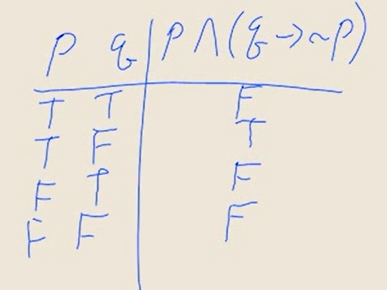 P q P ∧ (q → ~P)
T T F
T F T
F T F
F F F